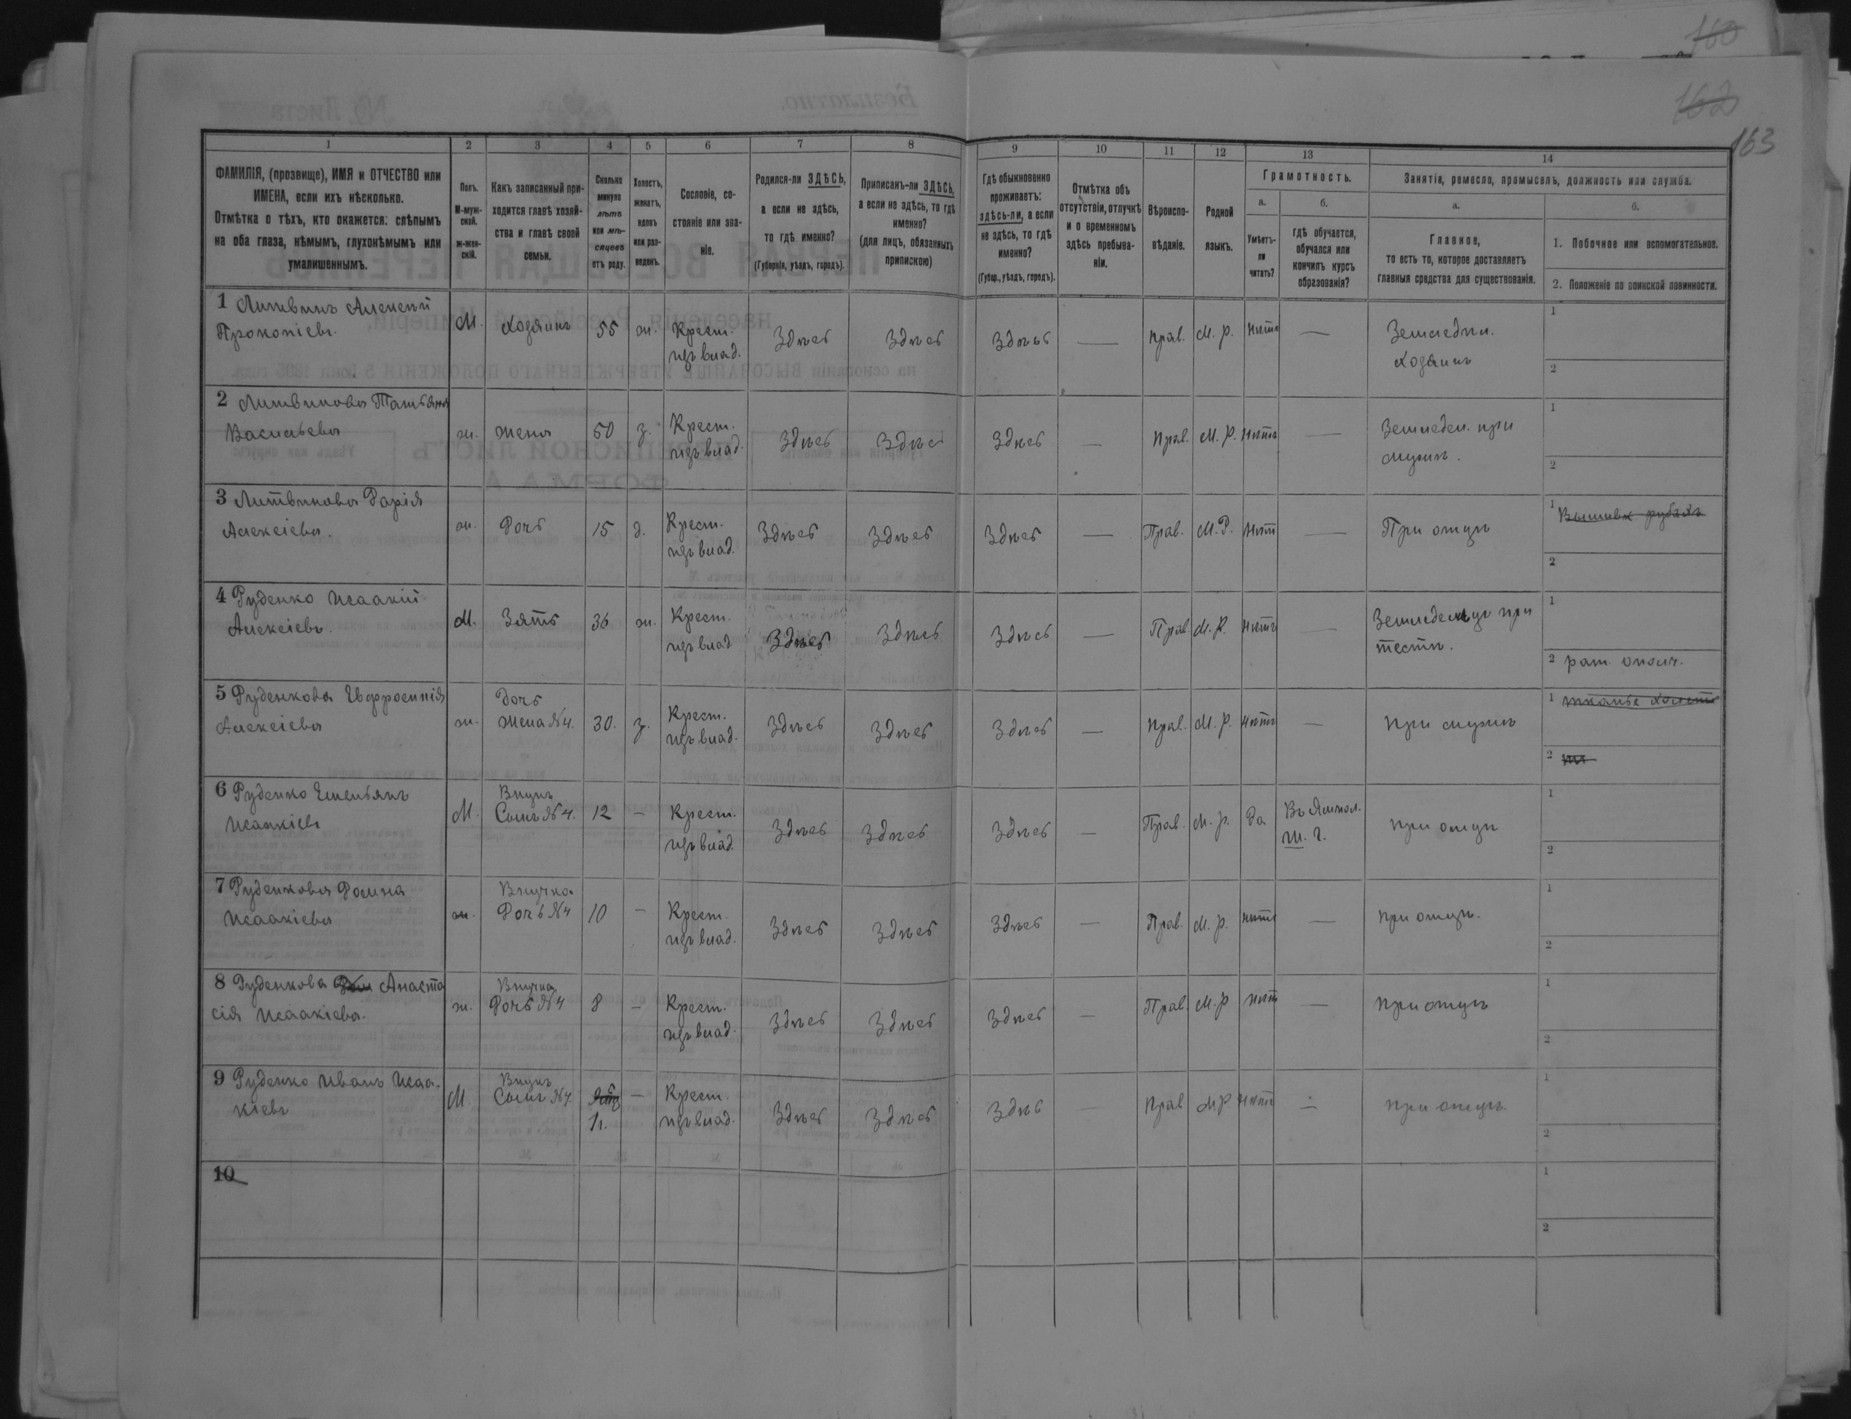 160
162
163
1
ФАМИЛІЯ, (прозвище), ИМЯ и ОТЧЕСТВО или
ИМЕНА, если ихъ нѣсколько.
Отмѣтка о тѣхъ, кто окажется: слѣпымъ
на оба глаза, нѣмымъ, глухонѣмымъ или
умалишеннымъ.
2
Полъ.
М-муж-
ской.
ж-жен-
скій.
3
Какъ записанный при-
ходится главѣ хозяй-
ства и главѣ своей
семьи.
4
Сколько
минуло
лѣтъ
или мѣ-
сяцевъ
отъ роду.
5
Холостъ,
женатъ,
вдовъ
или раз-
веденъ.
6
Сословіе, со-
стояніе или зва-
ніе.
7
Родился-ли ЗДѢСЬ,
а если не здѣсь,
то гдѣ именно?
(Губернія, уѣздъ, городъ).
8
Приписанъ-ли ЗДѢСЬ,
а если не здѣсь, то гдѣ
именно?
(для лицъ, обязанныхъ
припискою)
9
Гдѣ обыкновенно
проживаетъ:
здѣсь-ли, а если
не здѣсь, то гдѣ
именно?
(Губер., уѣздъ, городъ).
10
Отмѣтка объ
отсутствіи, отлучкѣ
и о временномъ
здѣсь пребыва-
ніи.
11
Вѣроиспо-
вѣданіе.
12
Родной
языкъ.
13
Грамотность.
а.
Умѣетъ-
ли
читать?
б.
гдѣ обучается,
обучался или
кончилъ курсъ
образованія?
14
Занятіе, ремесло, промыселъ, должность или служба.
а.
Главное,
то есть то, которое доставляетъ
главныя средства для существованія.
б.
1. Побочное или вспомогательное.
2. Положеніе по воинской повинности.
1 Литвинъ Алексей
Прокопіевъ. М. Хозяинъ 55 ж. Крест.
изъ влад. Здѣсь Здѣсь Здѣсь — Прав. М. р. Нѣтъ — Земледѣл.
Хозяинъ
1
2
2 Литвинова Татьяна
Васильева ж. Жена 50 з. Крест.
изъ влад. Здѣсь Здѣсь Здѣсь — Прав. М. Р. Нѣтъ — Земледел. при
мужѣ.
1
2
3 Литвинова Дарія
Алексіева. ж. Дочь 15 д. Крест.
изъ влад. Здѣсь Здѣсь Здѣсь — Прав. М. Р. Нѣт — При отцѣ
1 Вышивк рубахъ
2
4 Руденко Исаакій
Алексіевъ. М. Зять 36 ж. Крест.
изъ влад Здѣсь Здѣсь Здѣсь — Прав М. Р. Нѣтъ — Земледелецъ при
тестѣ.
1
2 рат. ополч.
5 Руденкова Евфросинія
Алексіева ж. Дочь
Жена №4. 30. з. Крест.
изъ влад. Здѣсь Здѣсь Здѣсь — Прав. М. р. Нѣтъ — при мужѣ
1 тканье холста
2
6 Руденко Емельянъ
Исаакіевъ М. Внукъ
Сынъ №4. 12 — Крест.
изъ влад. Здѣсь Здѣсь Здѣсь — Прав. М. р. Да при отцѣ
1
2
7 Руденкова Домна
Исаакіева ж. Внучка
Дочь №4 10 — Крест.
изъ влад. Здѣсь Здѣсь Здѣсь — Прав. М. р. Нѣтъ — при отцѣ.
1
2
8 Руденкова Анаста
сія Исаакіева. ж. Внучка
Дочь №4 8 — Крест.
изъ влад. Здѣсь Здѣсь Здѣсь — Прав. М. р Нѣт — при отцѣ
1
2
9 Руденко Иванъ Исаа-
кіевъ М Внукъ
Сынъ №4. — Крест.
изъ влад. Здѣсь Здѣсь Здѣсь — Прав М Р Нѣтъ — при отцѣ.
1
2
10
1
2